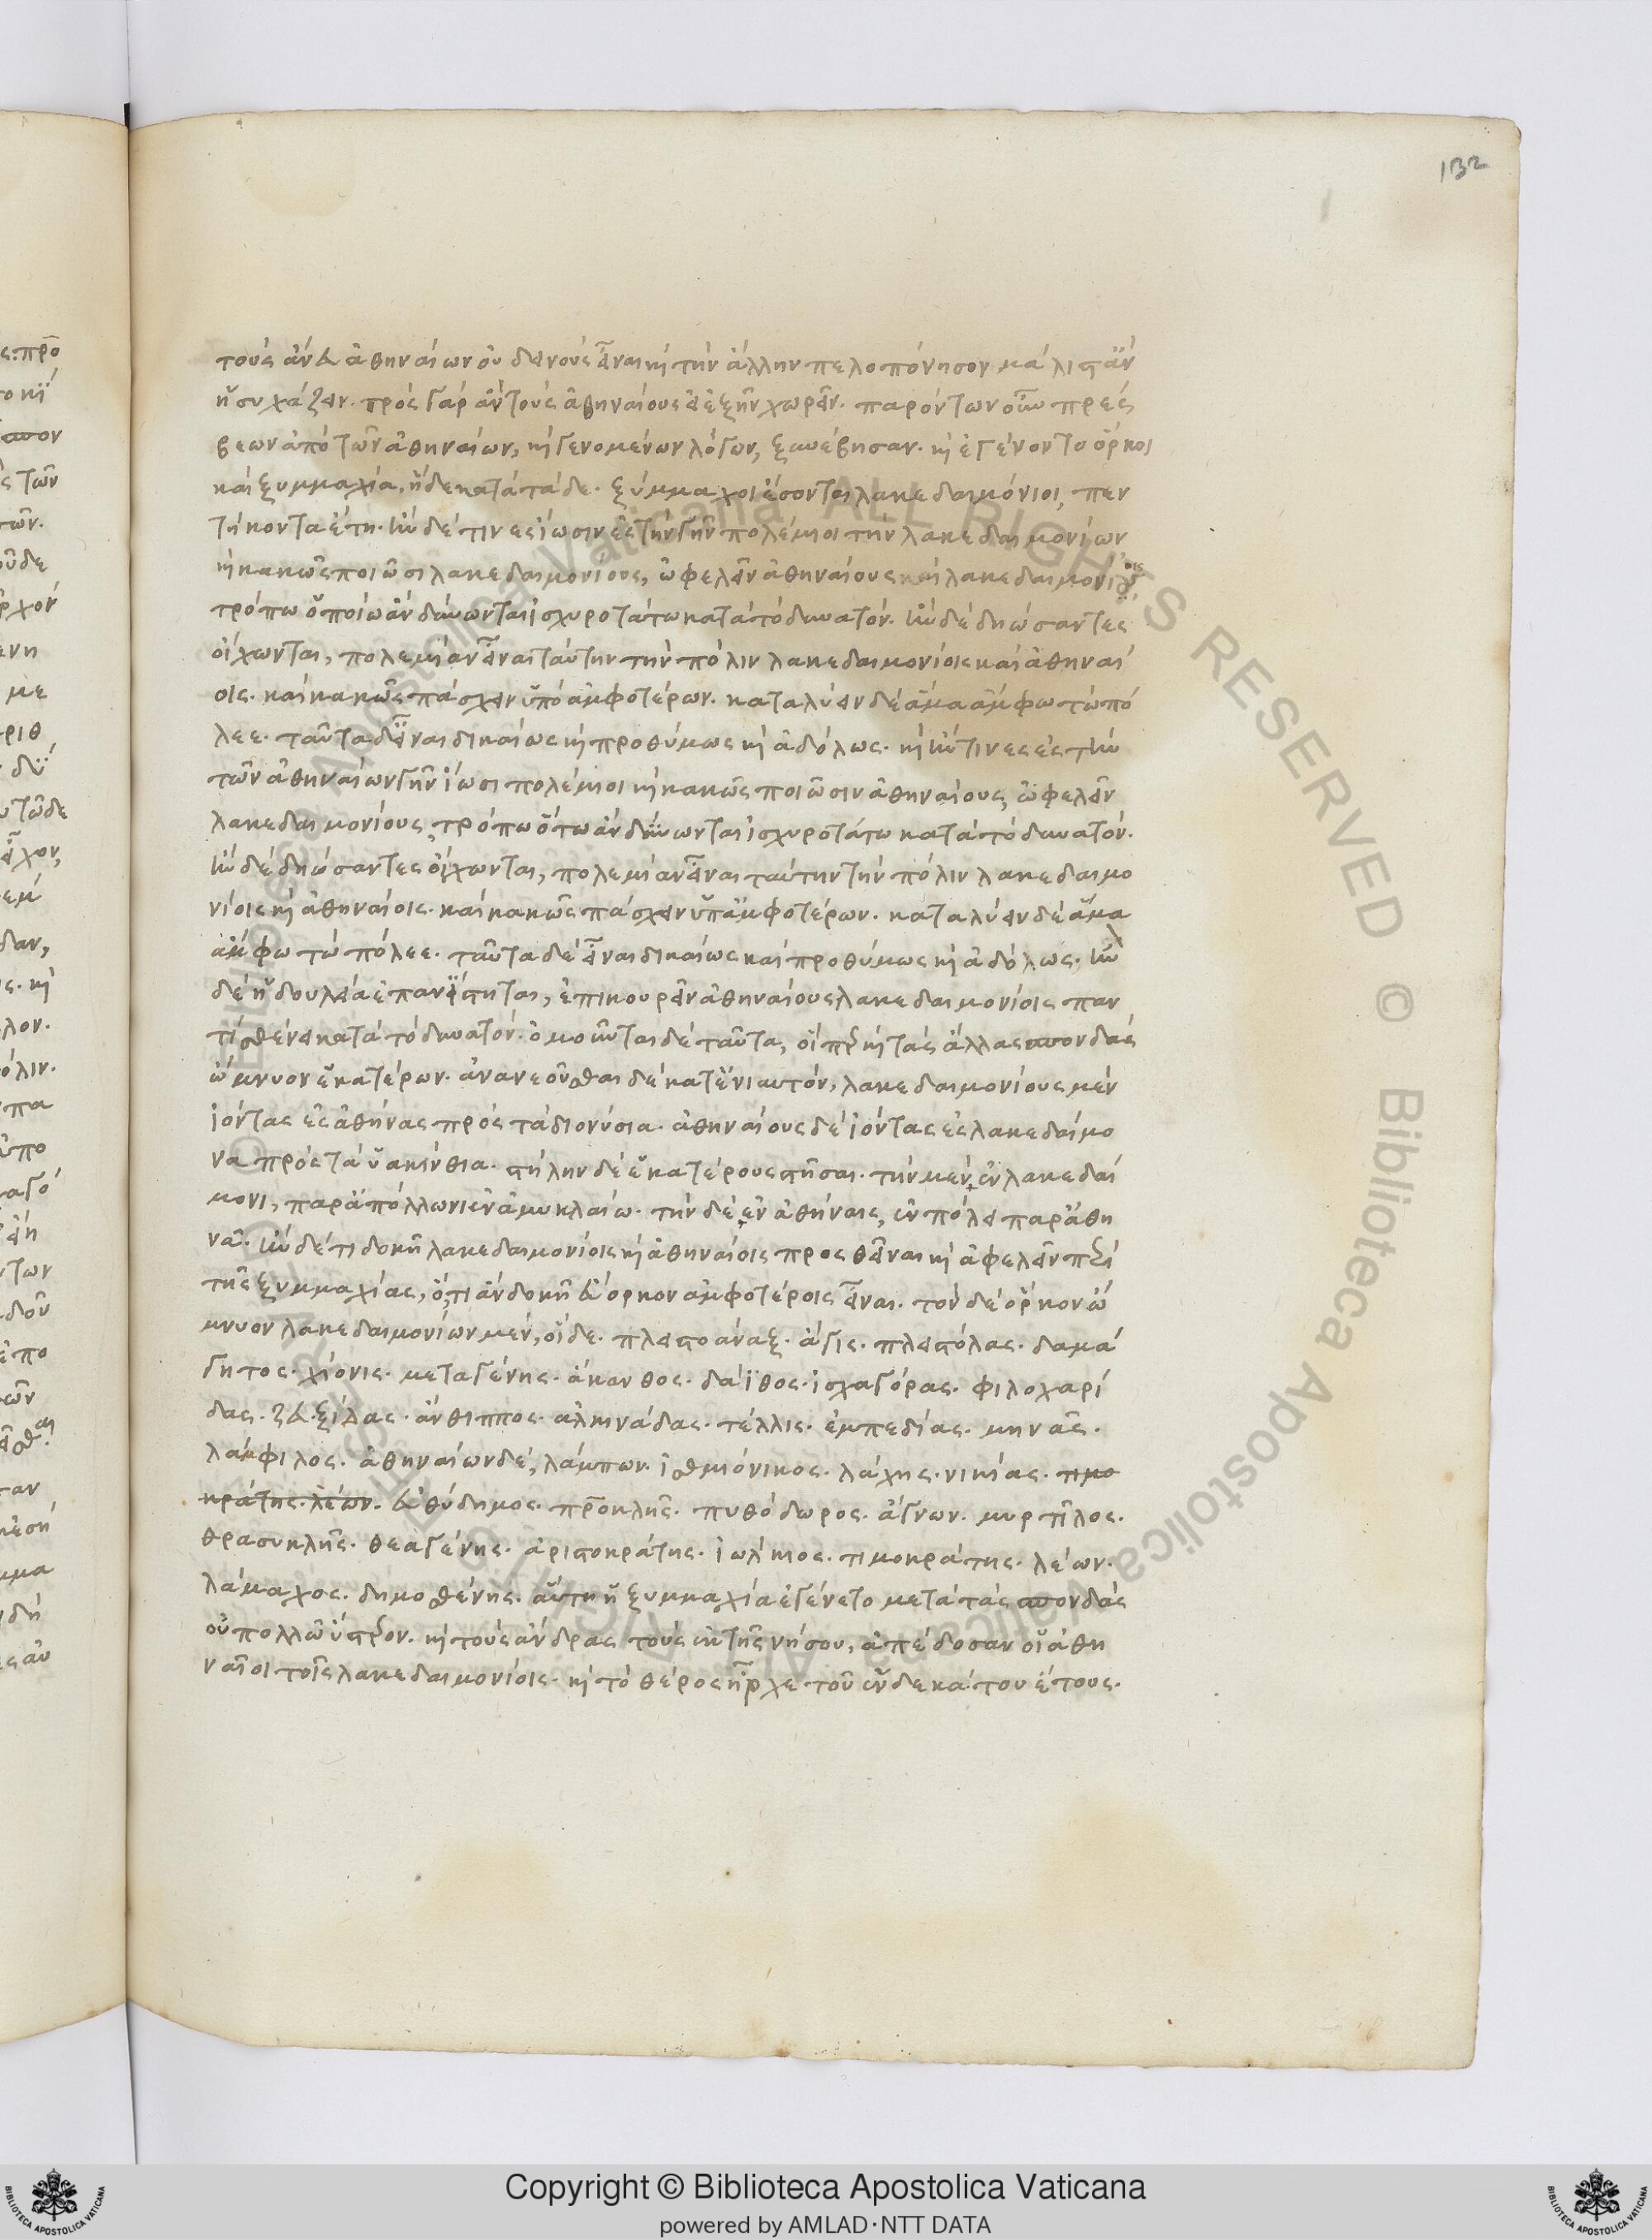 132
τοὺς ἄνευ ἀθηναίων οὐ δεινοὺς εἶναι καὶ τὴν ἄλλην πελοπόνησον μάλιστ' ἂν
ἡσυχάζειν. πρὸς γὰρ ἂν τοὺς ἀθηναίους εἰ ἐξῆν χωρεῖν. παρόντων οὖν πρέσ
βεων ἀπὸ τῶν ἀθηναίων, καὶ γενομένων λόγων, ξυνέβησαν. καὶ ἐγένοντο ὅρκοι
καὶ ξυμμαχία, ἥδε κατὰ τάδε. ξύμμαχοι ἔσονται λακεδαιμόνιοι, πεν
τήκοντα ἔτη. ἢν δέ τινες ἴωσιν ἐς τὴν γῆν πολέμιοι τὴν λακεδαιμονίων
καὶ κακῶς ποιῶσι λακεδαιμονίους, ὠφελεῖν ἀθηναίους καὶ λακεδαιμονίοις
τρόπω ὁποίω ἂν δύνωνται ἰσχυροτάτω κατὰ τὸ δυνατόν. ἢν δὲ δηώσαντες
οἴχωνται, πολεμίαν εἶναι ταύτην τὴν πόλιν λακεδαιμονίοις καὶ ἀθηναί
οις. καὶ κακῶς πάσχειν ὑπὸ ἀμφοτέρων. καταλύειν δὲ ἅμα ἄμφω τὼ πό
λεε. ταῦτα δ' εἶναι δικαίως καὶ προθύμως καὶ ἀδόλως. καὶ ἤν τινες ἐς τὴν
τῶν ἀθηναίων γῆν ἴωσι πολέμιοι καὶ κακῶς ποιῶσιν ἀθηναίους, ὠφελεῖν
λακεδαιμονίους, τρόπω ὅτω ἂν δύνωνται ἰσχυροτάτω κατὰ τὸ δυνατόν.
ἢν δὲ δηώσαντες οἴχωνται, πολεμίαν εἶναι ταύτην τὴν πόλιν λακεδαιμο
νίοις καὶ ἀθηναίοις. καὶ κακῶς πάσχειν ὑπ' ἀμφοτέρων. καταλύειν δὲ ἅμα
ἄμφω τὼ πόλεε. ταῦτα δὲ εἶναι δικαίως καὶ προθύμως καὶ ἀδόλως. ἢν
δὲ ἡ δουλεία ἐπανίστηται, ἐπικουρεῖν ἀθηναίους λακεδαιμονίοις παν
τὶ σθένει κατὰ τὸ δυνατόν. ὀμοῦνται δὲ ταῦτα, οἵπερ καὶ τὰς ἄλλας σπονδὰς
ὤμνυον ἑκατέρων. ἀνανεοῦσθαι δὲ κατ' ἐνιαυτόν, λακεδαιμονίους μὲν
ἰόντας ἐς ἀθήνας πρὸς τὰ διονύσια. ἀθηναίους δὲ ἰόντας ἐς λακεδαίμο
να πρὸς τὰ ὑακίνθια. στήλην δὲ ἑκατέρους στῆσαι. τὴν μὲν, ἐν λακεδαί
μονι, παρ' ἀπόλλωνι ἐν ἀμυκλαίω. τὴν δὲ, ἐν ἀθήναις, ἐν πόλει παρ' ἀθη
νᾶ. ἢν δέ τι δοκῆ λακεδαιμονίοις καὶ ἀθηναίοις προσθεῖναι καὶ ἀφελεῖν περὶ
τῆς ξυμμαχίας, ὅ,τι ἂν δοκῆ εὔορκον ἀμφοτέροις εἶναι. τὸν δὲ ὅρκον ὤ
μνυον λακεδαιμονίων μὲν, οἵδε. πλειστοάναξ. ἄγις. πλειστόλας. δαμά
γητος. χίονις. μεταγένης. ἄκανθος. δάϊθος. ἰσχαγόρας. φιλοχαρί
δας. ζευξίδας. ἄνθιππος. ἀλκινάδας. τέλλις. ἐμπεδίας. μηνᾶς.
λάμφιλος. ἀθηναίων δὲ, λάμπων. ἰσθμιόνικος. λάχης. νικίας. τιμο
κράτης. λέων. εὐθύδημος. προκλῆς. πυθόδωρος. ἅγνων. μυρτίλος.
θρασυκλῆς. θεαγένης. ἀριστοκράτης. ἰώλκιος. τιμοκράτης. λέων.
λάμαχος. δημοσθένης. αὕτη ἡ ξυμμαχία ἐγένετο μετὰ τὰς σπονδὰς
οὐ πολλῶ ὕστερον. καὶ τοὺς ἄνδρας τοὺς ἐκ τῆς νήσου, ἀπέδοσαν οἱ ἀθη
ναῖοι τοῖς λακεδαιμονίοις. καὶ τὸ θέρος ἦρχε τοῦ ἑνδεκάτου ἔτους.
Copyright © Biblioteca Apostolica Vaticana
powered by AMLAD·NTT DATA